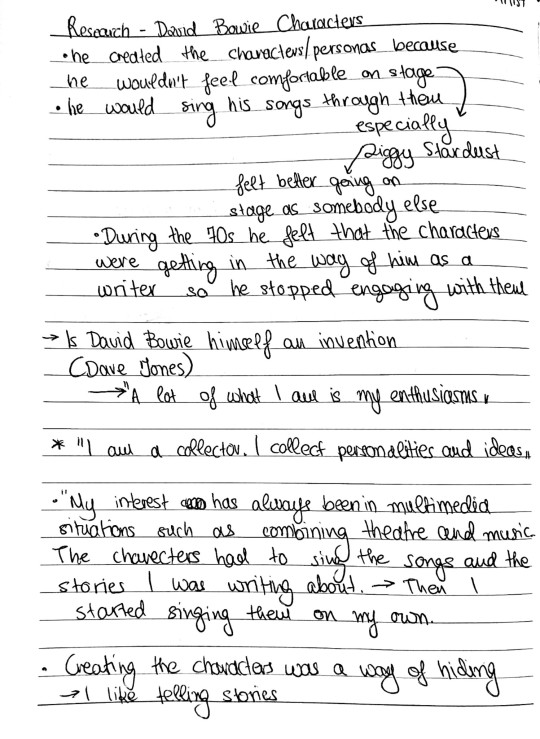 Research - David Bowie Characters
• he created the characters/personas because
he wouldn't feel comfortable on stage
• he would sing his songs through them
especially
Ziggy Stardust
felt better going on
stage as somebody else
• During the 70s he felt that the characters
were getting in the way of him as a
writer so he stopped engaging with them
→ Is David Bowie himself an invention
(Dave Jones)
→ "A lot of what I am is my enthusiasms"
* "I am a collector. I collect personalities and ideas"
• "My interest has always been in multimedia
situations such as combining theatre and music
The charecters had to sing the songs and the
stories I was writing about. → Then I
started singing them on my own.
• Creating the characters was a way of hiding
→ I like telling stories